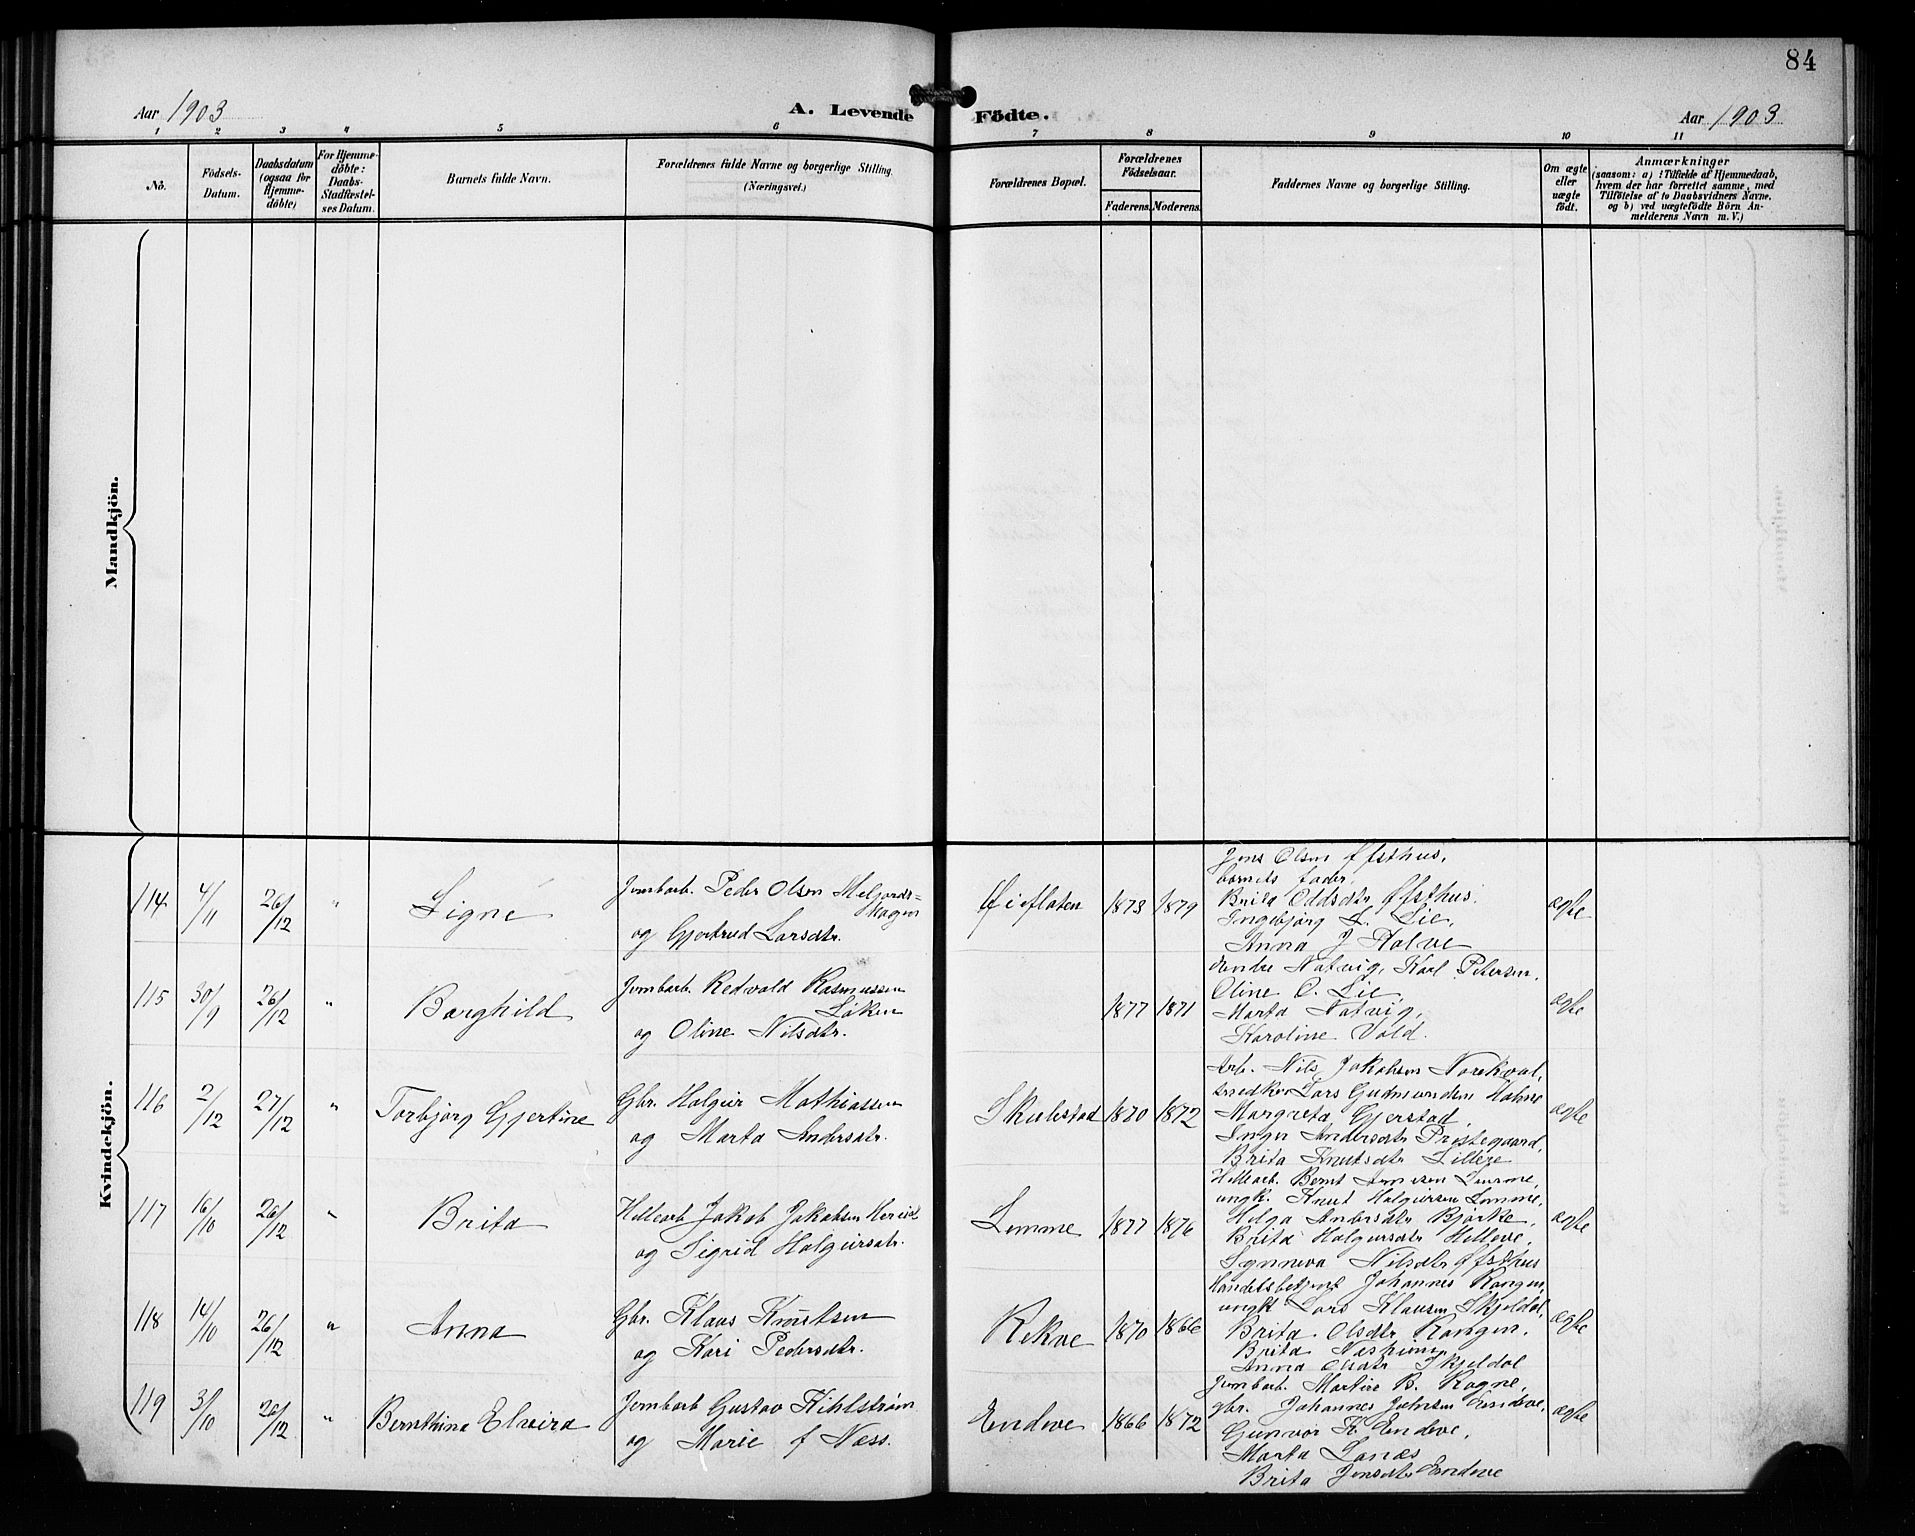 84
Aar 1903
A. Levende Födte.
Aar 1903
1 2 3 4 5 6 7 8 9 10 11
No.
Födsels-
Datum.
Daabsdatum
(ogsaa for
Hjemme-
döbte)
For Hjemme-
döbte:
Daabs-
Stadfæstel-
ses Datum.
Barnets fulde Navn.
Forældrenes fulde Navne og borgerlige Stilling.
(Næringsvei.)
Forældrenes Bopæl.
Forældrenes
Födselsaar.
Faderens. Moderens.
Faddernes Navne og borgerlige Stilling.
Om ægte
eller
uægte
födt.
Anmærkninger
(saasom: a) i Tilfælde af Hjemmedaab,
hvem der har forrettet samme, med
Tilföielse af to Daabsvidners Navne,
og b) ved uægtefödte Börn An-
melderens Navn m. V.)
Mandkjön.
Kvindekjön.
114 4/11 26/12 " Signe
Jernbarb. Peder Olsen
og Gjertrud Larsdtr.
1873 1879
Jens Olsen Øfsthus,
barnets fader,
Brita Oddsdtr. Øfsthus,
Ingebjørg L. Lie,
Anna J
ægte
115 30/9 26/12 " Borghild
Jernbarb. Redvald Rasmussen
Løken
og Oline Nilsdtr.
1877 1871
Endre Natvig, Karl Petersen,
Oline O. Lie,
Marta Natvig,
Karoline Vold.
ægte
116 2/12 27/12 " Torbjørg Gjertine
Gbr. Holgeir Mathiassen
og Marta Andersdtr.
Skulestad 1870 1872
Arb. Nils Jakobsen
snedker Lars Gudmundsen
Margreta Gjerstad,
Inger Andersdtr Prestegaard,
Brita Knutsdtr
ægte
117 16/10 26/12 " Brita
Hellearb Jakob Jakobsen Hereid
og Sigrid Holgeirsdtr.
Lemme 1877 1876
Hellearb. Bernt
ungk. Knut Holgeirsen Lemme,
Helga Andersdtr Bjørke,
Brita Holgeirsdtr
Synneva Nilsdtr Øfsthus
ægte
118 14/10 26/12 " Anna
Gbr. Klaus Knutsen
og Kari Pedersdtr.
Rekve 1870 1866
Handelsbetjent Johannes Rongen,
ungk. Lars Klausen Skjeldal,
Brita Olsdtr Rongen,
Brita Næsheim
Anna Olsdtr Skjeldal
ægte
119 3/10 26/12 " Bernthina Elvira
Jernbarb Gustav Kihlstrøm
og Marie f. Næss.
Endeve 1866 1872
Jernbarb. Martin B. Rogne,
gbr. Johannes Endeve,
Gunvor K. Endeve,
Marta Lanes
Brita Jensdtr Endeve
ægte